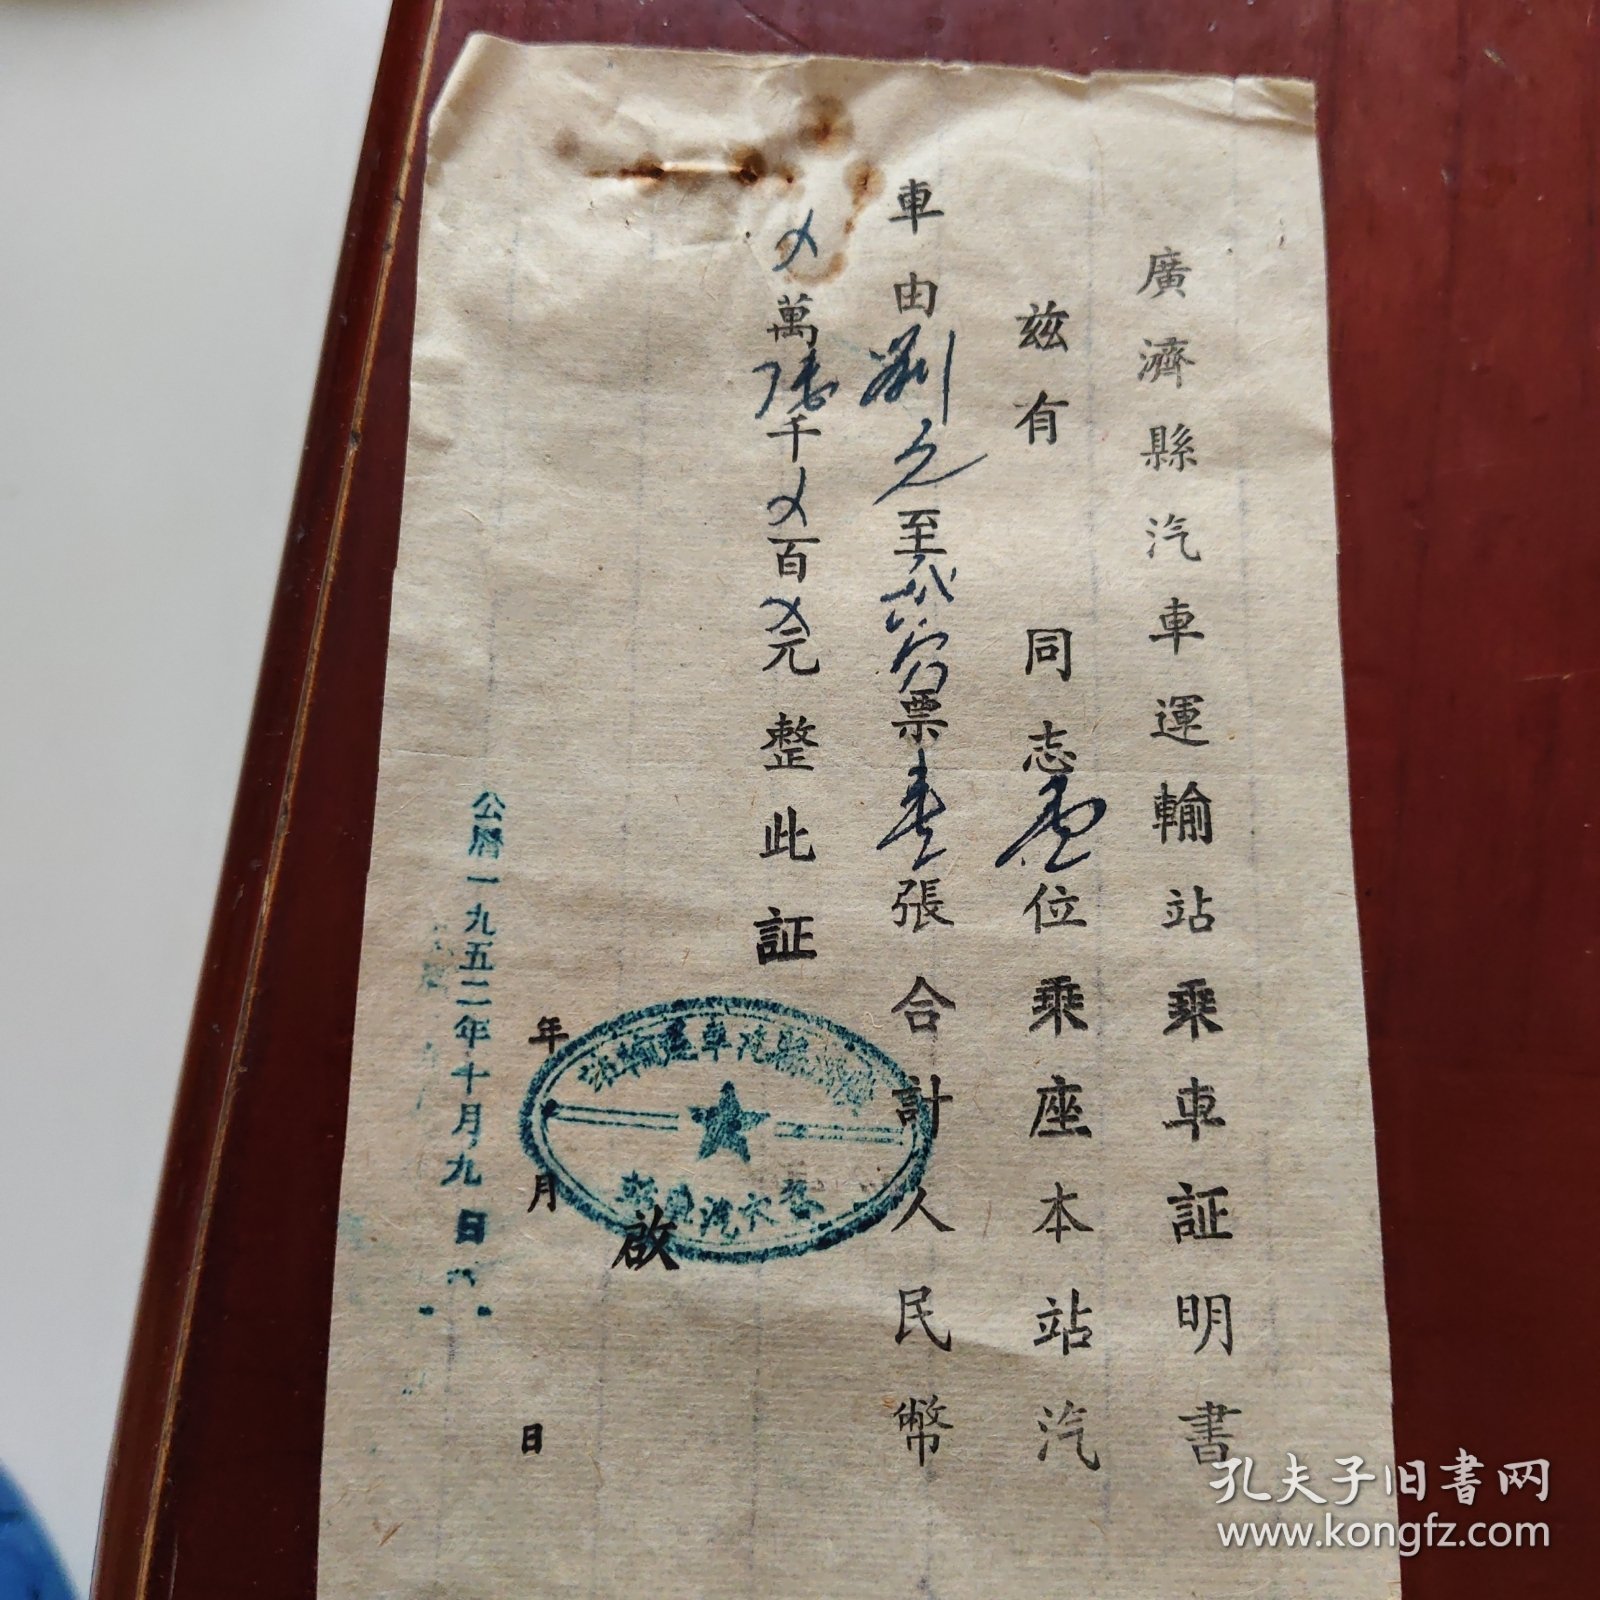 廣濟縣汽車運輸站乘車証明書
兹有 同志壹位乘座本站汽
車由劉元至武穴票壹張合計人民幣
〤萬陸千〤百〤元整此証
啟
年 月 日
公曆一九五二年十月九日
孔夫子旧书网
www.kongfz.com